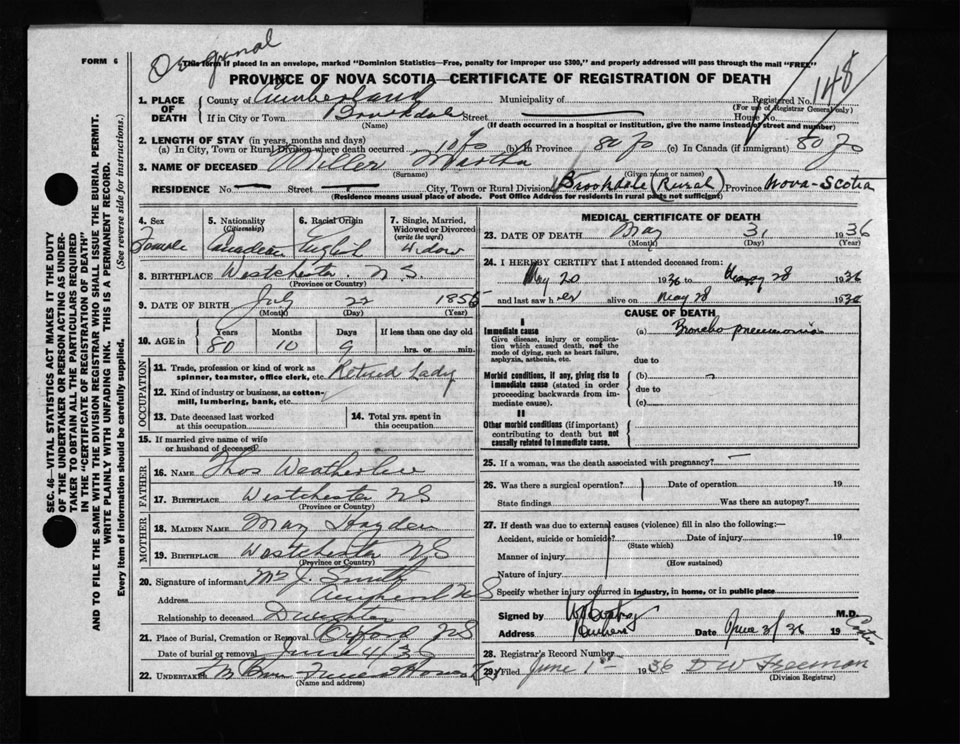 Original
FORM 6
This form if placed in an envelope, marked "Dominion Statistics—Free, penalty for improper use $300," and properly addressed will pass through the mail "FREE"
PROVINCE OF NOVA SCOTIA—CERTIFICATE OF REGISTRATION OF DEATH
148
1. PLACE OF DEATH
County of Cumberland Municipality of Registered No.
(For use of Registrar General only)
If in City or Town Brookdale Street House No.
(Name) (If death occurred in a hospital or institution, give the name instead of street and number)
2. LENGTH OF STAY (in years, months and days)
(a) In City, Town or Rural Division where death occurred (b) In Province 80 (c) In Canada (if immigrant) 80
3. NAME OF DECEASED Miller Martha
(Surname) (Given name or names)
RESIDENCE No. — Street — City, Town or Rural Division Brookdale (Rural) Province Nova-Scotia
(Residence means usual place of abode. Post Office Address for residents in rural parts not sufficient)
4. Sex 5. Nationality (Citizenship) 6. Racial Origin 7. Single, Married, Widowed or Divorced (write the word)
Female Canadian English Widow
8. BIRTHPLACE Westchester. N.S.
(Province or Country)
9. DATE OF BIRTH July 22 1855
(Month) (Day) (Year)
10. AGE in Years Months Days If less than one day old
80 10 9 hrs. or min.
OCCUPATION
11. Trade, profession or kind of work as spinner, teamster, office clerk, etc. Retired Lady
12. Kind of industry or business, as cotton-mill, lumbering, bank, etc.
13. Date deceased last worked at this occupation
14. Total yrs. spent in this occupation
15. If married give name of wife or husband of deceased
FATHER
16. NAME Thos Weatherbee
17. BIRTHPLACE Westchester NS
(Province or Country)
MOTHER
18. MAIDEN NAME May Hayden
19. BIRTHPLACE Westchester NS
(Province or Country)
20. Signature of informant Mrs J. Smith
Address Amherst NS
Relationship to deceased Daughter
21. Place of Burial, Cremation or Removal NS
Date of burial or removal June 4/36
22. UNDERTAKER
(Name and address)
MEDICAL CERTIFICATE OF DEATH
23. DATE OF DEATH May 31 1936
(Month) (Day) (Year)
24. I HEREBY CERTIFY that I attended deceased from:
May 20 1936 to May 28 1936
and last saw her alive on May 28 1936
CAUSE OF DEATH
I
Immediate cause
Give disease, injury or complication which caused death, not the mode of dying, such as heart failure, asphyxia, asthenia, etc.
(a) Broncho pneumonia
due to
Morbid conditions, if any, giving rise to immediate cause (stated in order proceeding backwards from immediate cause).
(b)
due to
(c)
II
Other morbid conditions (if important) contributing to death but not causally related to immediate cause.
25. If a woman, was the death associated with pregnancy? —
26. Was there a surgical operation? Date of operation 19
State findings Was there an autopsy?
27. If death was due to external causes (violence) fill in also the following:—
Accident, suicide or homicide? Date of injury 19
(State which)
Manner of injury
(How sustained)
Nature of injury
Specify whether injury occurred in industry, in home, or in public place
Signed by M.D.
Address Amherst Date June 3/36 19
28. Registrar's Record Number
29. Filed June 1st 1936 D W Freeman
(Division Registrar)
SEC. 46—VITAL STATISTICS ACT MAKES IT THE DUTY
OF THE UNDERTAKER OR PERSON ACTING AS UNDER-
TAKER TO OBTAIN ALL THE PARTICULARS REQUIRED
IN THE "CERTIFICATE OF REGISTRATION OF DEATH"
AND TO FILE THE SAME WITH THE DIVISION REGISTRAR WHO SHALL ISSUE THE BURIAL PERMIT.
WRITE PLAINLY WITH UNFADING INK. THIS IS A PERMANENT RECORD.
Every item of information should be carefully supplied. (See reverse side for instructions.)